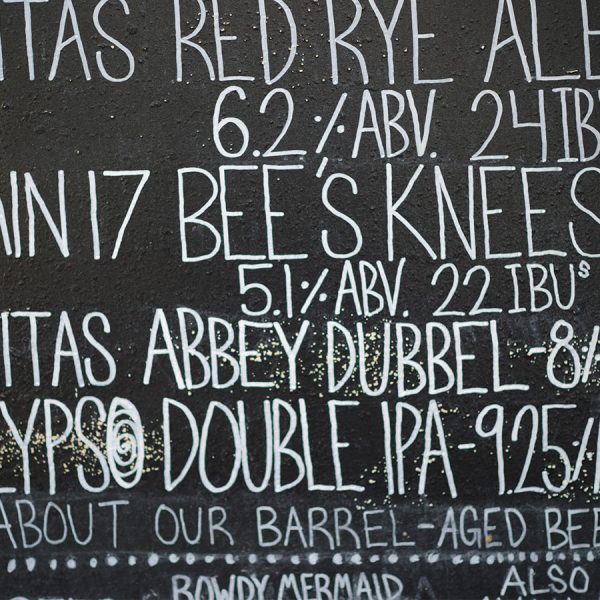 ITAS RED RYE ALE
6.2 % ABV. 24 IB
AIN 17 BEE'S KNEES
5.1% ABV. 22 IBUs
ITAS ABBEY DUBBEL - 8
LYPSO DOUBLE IPA - 9.25%
ABOUT OUR BARREL-AGED BEE
ROWDY MERMAID
ALSO